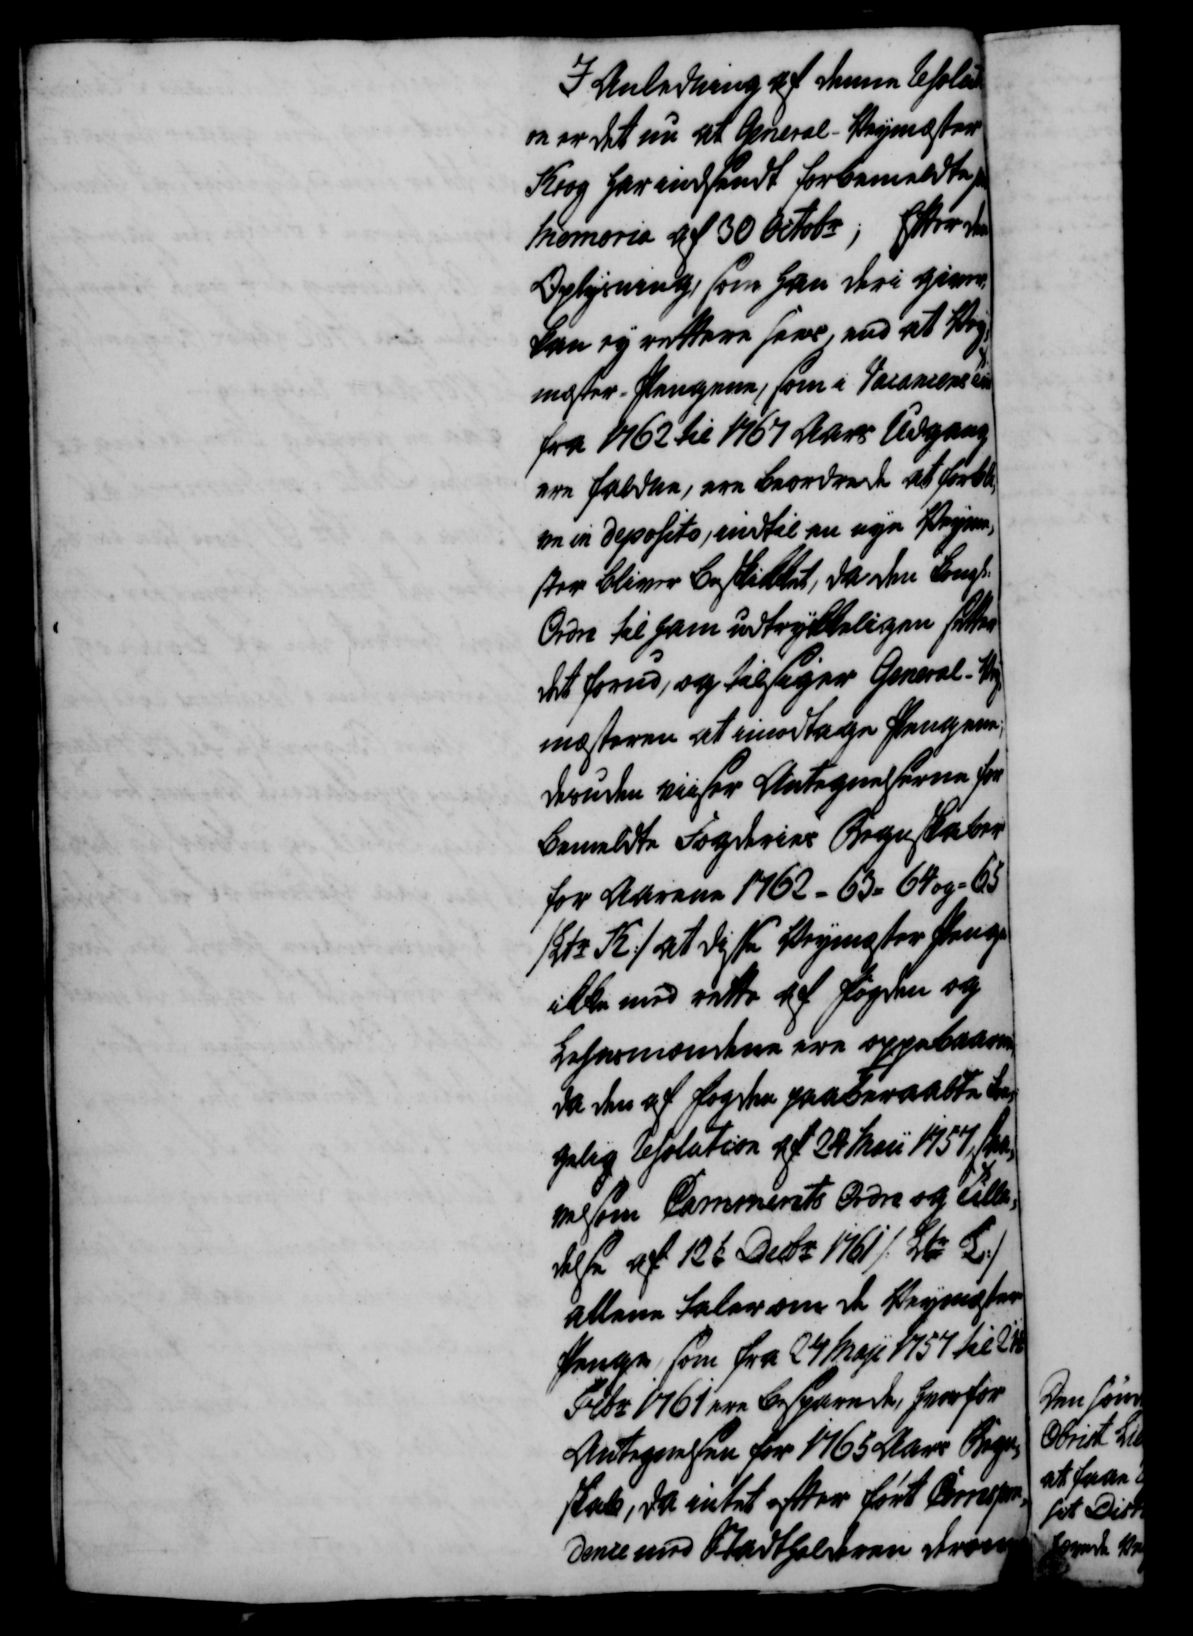 I Anledning af denne Resoluti
on er det nu at General-Veymester
Krog har indsendt forbemeldte
Memoria af 30 Octobr; Efter den
Oplysning, som han deri giver,
kan ey rettere sees, end at Vey
mester-Pengene, som i Vacancens
fra 1762 til 1767 Aars Udgang
ere faldne, ere beordrede at forbli
ve in deposito, indtil en nye Veyme
ster bliver beskikket, da den Kongl.
Ordre til ham udtrykkeligen sætter
det forud, og tilsiger General-Vey
mesteren at imodtage Pengene;
desuden viiser Antegnelserne for
bemeldte Fogderies Regnskaber
for Aarene 1762-63-64 og-65
/:Ltr K:/ at disse Veymester Penge
ikke med rette af Fogden og
Lehnsmændene ere oppebaarne,
da den af Fogden paaberaabte kon
gelig Resolution af 24 Maii 1757,
velsom Cammerets Ordre og Tilla
delse af 12t Decbr 1761 /: Ltr L:/
allene taler om de Veymester
Penge, som fra 24 Maji 1757 til 24
Febr 1761 ere besparede, hvorfor
Antegnelsen for 1765 Aars Regn
skab, da intet efter ført Correspon
dence med Stadtholderen derom
Den
Obrist
at faae
sit